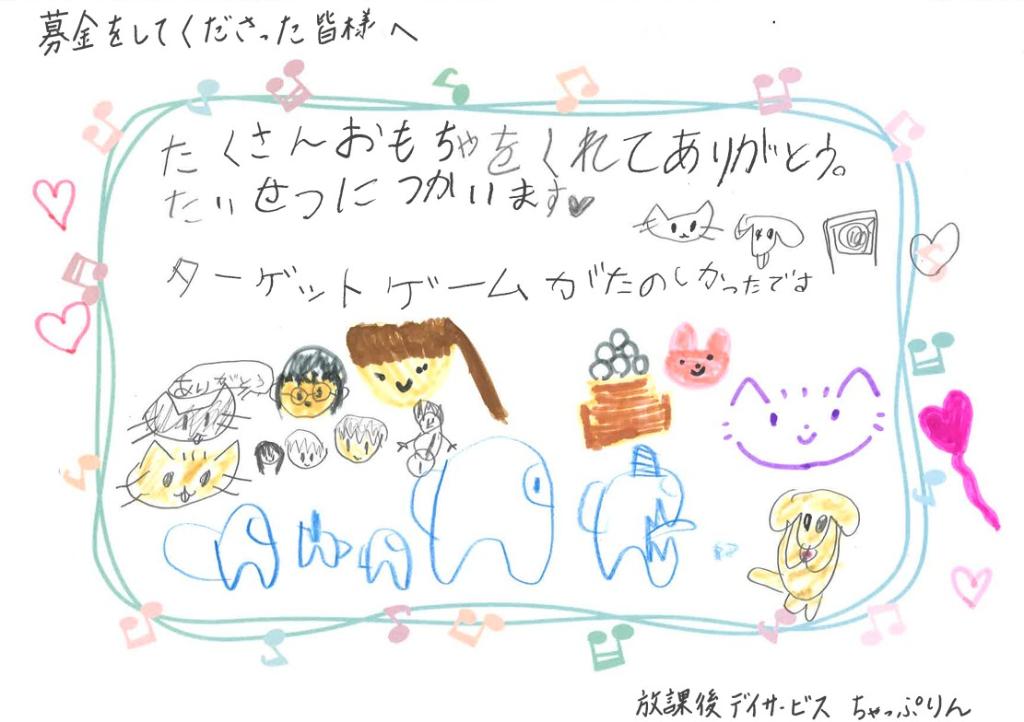 募金をしてくださった皆様へ
たくさんおもちゃをくれてありがとう。
たいせつにつかいます♥
ターゲットゲームがたのしかったです
ありがとう
放課後デイサービス ちゃっぷりん